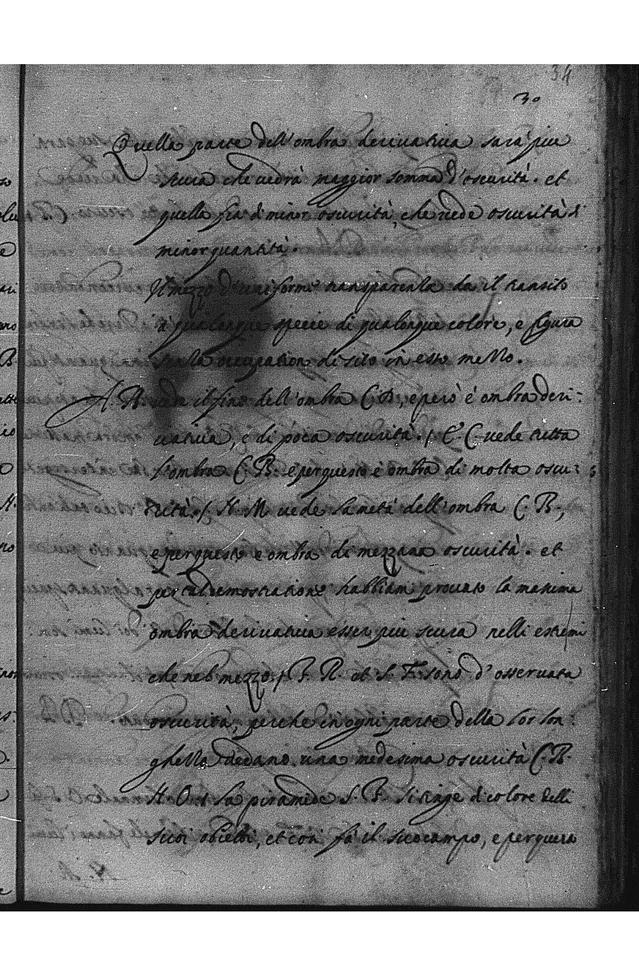 34
30
Quella parte dell'ombra derivativa sarà piu
scura che vedrà maggior somma d'oscurità. et
quella fia di minor oscurità, che vede oscurità di
minor quantità.
Il mezzo d'uniforme transparentia da il transito
à qualonque specie di qualonque colore, e figura
senza occupation di sito in esso mezzo.
A. B. il fine dell'ombra C.B., e però è ombra deri:
vativa, e di poca oscurità. / E. C. vede tutta
l'ombra C. B. e per questo è ombra di molta oscu:
rità. / H. M vede la metà dell'ombra C. B.,
e per questo e ombra di mezzana oscurità. et
per tal demostratione habbiam provato la maxima
ombra derivativa esser piu scura nelli estremi
che nel mezzo. / et S. F. sono d'osservata
oscurità, perche in ogni parte della lor lon:
ghezza vedano una medesima oscurità C. B.
H. O. la piramide S. F. si tinge d colore delli
suoi obietti, et con fà il suo campo, e per questo